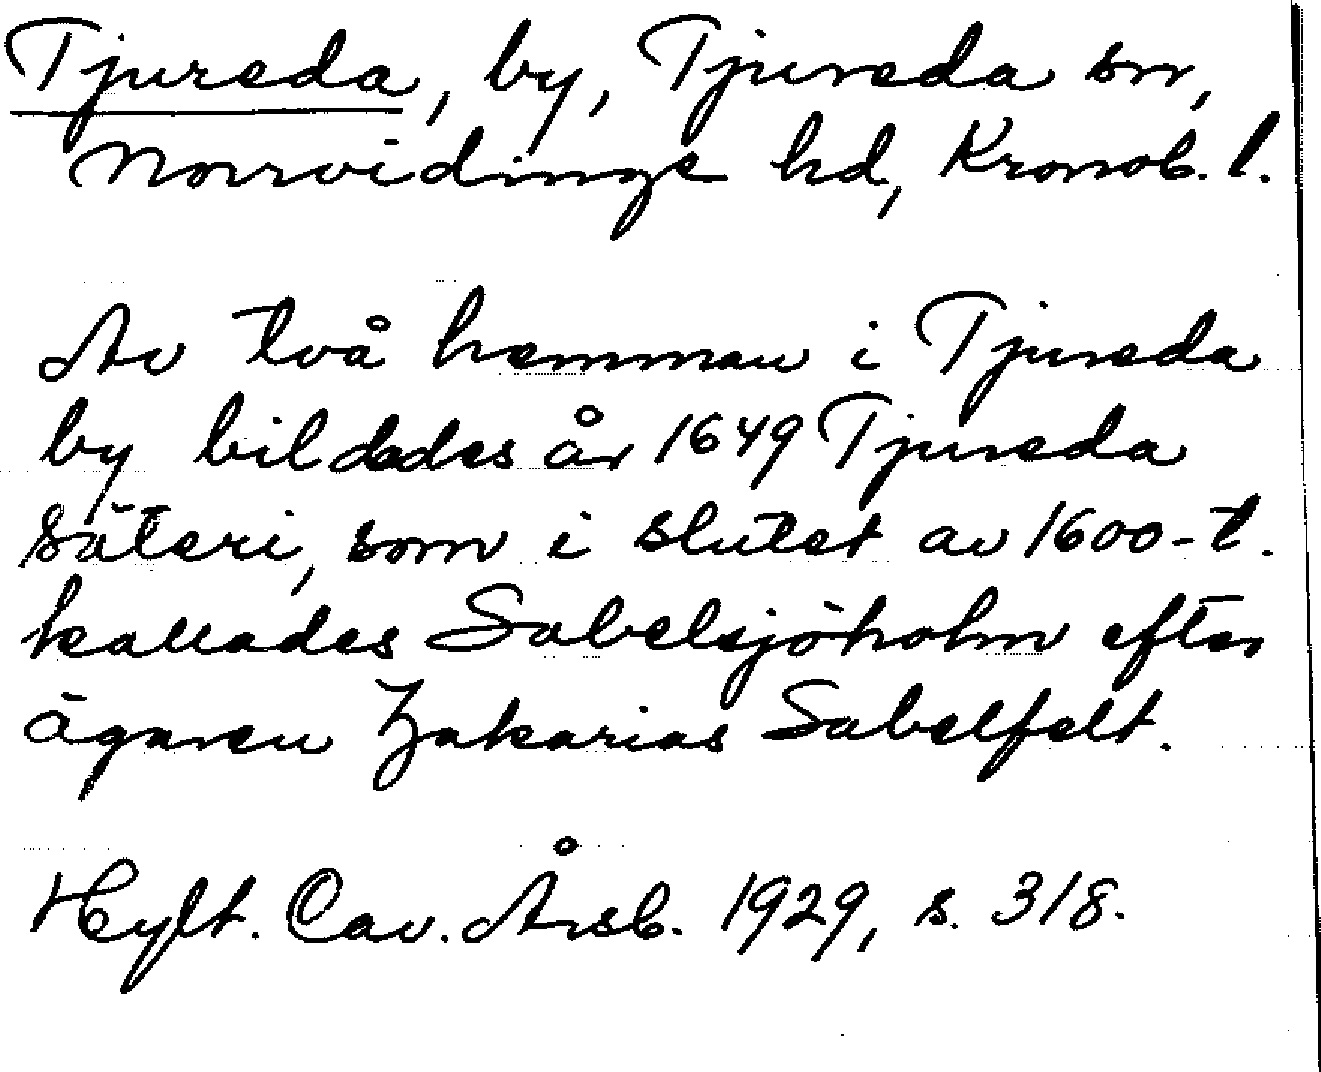 Tjureda, by, Tjureda sn,
Norrvidinge hd, Kronob. l.
Av två hemman i Tjureda
by bildades år 1649 Tjureda
säteri, som i slutet av 1600-t.
kallades Sabelsjöholm efter
ägaren Zakarias Sabelfelt.
Hylt. Cav. Årsb. 1929, s. 318.